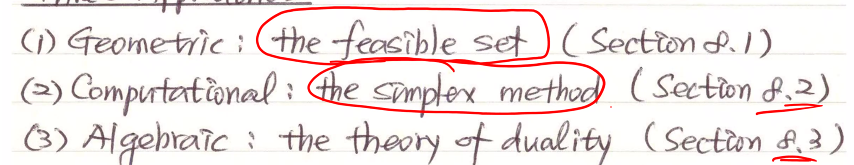 (1) Geometric : the feasible set (Section 8.1)
(2) Computational : the simplex method (Section 8.2)
(3) Algebraic : the theory of duality (Section 8.3)